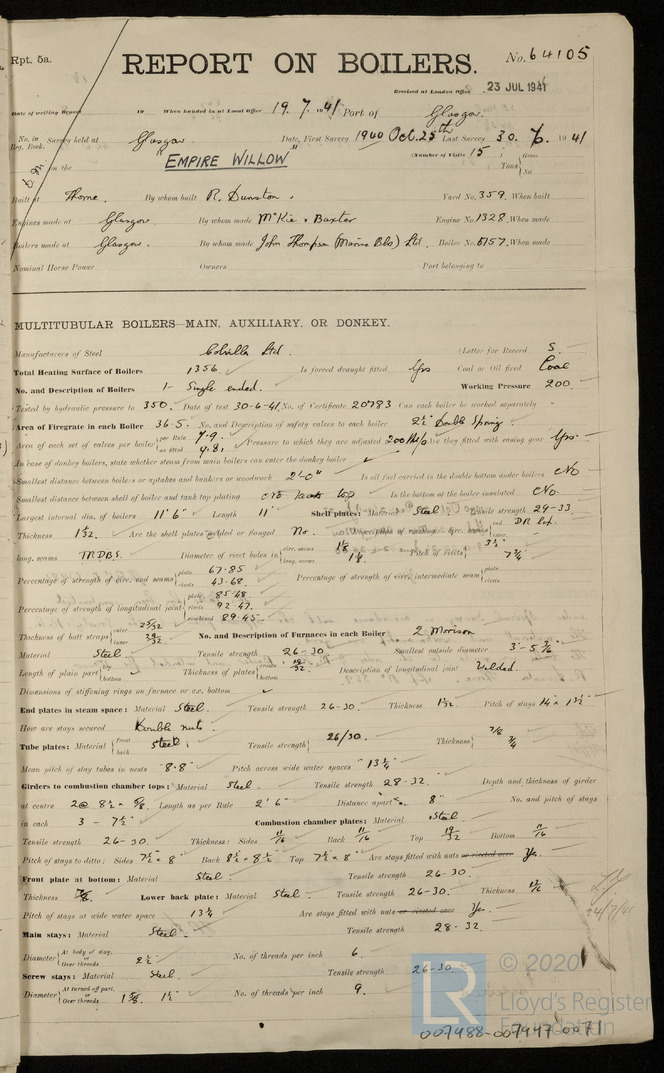 Rpt. 5a.
REPORT ON BOILERS.
No. 64105
Received at London Office 23 JUL 1941
Date of writing Report 19 When handed in at Local Office 19. 7. 1941 Port of Glasgow.
No. in Reg. Book. Survey held at Glasgow Date, First Survey 1940 Oct. 25th Last Survey 30. 6. 1941
on the "EMPIRE WILLOW" (Number of Visits 15) Tons { Gross Net
Built at Thorne. By whom built R. Dunston. Yard No. 359. When built
Engines made at Glasgow By whom made McKie & Baxter Engine No. 1328. When made
Boilers made at Glasgow. By whom made John Thompson (Marine Blrs) Ltd. Boiler No. 6157. When made
Nominal Horse Power Owners Port belonging to
MULTITUBULAR BOILERS—MAIN, AUXILIARY, OR DONKEY.
Manufacturers of Steel Colvilles Ltd. (Letter for Record S.
Total Heating Surface of Boilers 1356. Is forced draught fitted Yes Coal or Oil fired Coal
No. and Description of Boilers 1- Single ended. Working Pressure 200.
Tested by hydraulic pressure to 350. Date of test 30-6-41. No. of Certificate 20783 Can each boiler be worked separately
Area of Firegrate in each Boiler 36.5. No. and Description of safety valves to each boiler 2½" Double Spring
Area of each set of valves per boiler { per Rule 7.9. as fitted 9.81 Pressure to which they are adjusted 200 Are they fitted with easing gear Yes
In case of donkey boilers, state whether steam from main boilers can enter the donkey boiler
Smallest distance between boilers or uptakes and bunkers or woodwork 2'-0" Is oil fuel carried in the double bottom under boilers No
Smallest distance between shell of boiler and tank top plating No tank top Is the bottom of the boiler insulated No.
Largest internal dia. of boilers 11' 6" Length 11' Shell plates: Material Steel Tensile strength 29-33.
Thickness 1 1/32. Are the shell plates welded or flanged No. end DR Lap.
long. seams TRDBS. Diameter of rivet holes in { circ. seams 1 1/8 long. seams 1 1/8 Pitch of rivets { 7¾
Percentage of strength of circ. end seams { plate 67.85 rivets 43.68. Percentage of strength of circ. intermediate seam { plate rivets
Percentage of strength of longitudinal joint { plate 85.48 rivets 92.47. combined 89.45.
Thickness of butt straps { outer 25/32 inner 29/32. No. and Description of Furnaces in each Boiler 2 Morison
Material Steel Tensile strength 26-30 Smallest outside diameter 3'-5 3/16
Length of plain part { top bottom Thickness of plates { crown bottom 19/32 Description of longitudinal joint Welded.
Dimensions of stiffening rings on furnace or c.c. bottom
End plates in steam space: Material Steel. Tensile strength 26-30. Thickness 1 1/32. Pitch of stays 14 × 13½
How are stays secured Double nuts.
Tube plates: Material { front back Steel. Tensile strength { 26/30. Thickness { 7/8 ¾
Mean pitch of stay tubes in nests 8.8 Pitch across wide water spaces 13¼
Girders to combustion chamber tops: Material Steel Tensile strength 28-32. Depth and thickness of girder
at centre 2@ 8½ × 5/8 Length as per Rule 2' 6" Distance apart 8" No. and pitch of stays
in each 3 - 7½ Combustion chamber plates: Material Steel.
Tensile strength 26-30. Thickness: Sides 11/16 Back 11/16 Top 19/32 Bottom 11/16
Pitch of stays to ditto: Sides 7½ × 8" Back 8½ × 8½ Top 7½ × 8" Are stays fitted with nuts or riveted over Yes.
Front plate at bottom: Material Steel. Tensile strength 26-30.
Thickness 7/8. Lower back plate: Material Steel. Tensile strength 26-30. Thickness 13/16
Pitch of stays at wide water space 13¼ Are stays fitted with nuts or riveted over Yes.
Main stays: Material Steel. Tensile strength 28-32
Diameter { At body of stay, or Over threads 2½ No. of threads per inch 6.
Screw stays: Material Steel. Tensile strength 26-30
Diameter { At turned off part, or Over threads 1 5/8 1½ No. of threads per inch 9.
24/7/41
LR
© 2020
Lloyd's Register
Foundation
007488-007497-0071